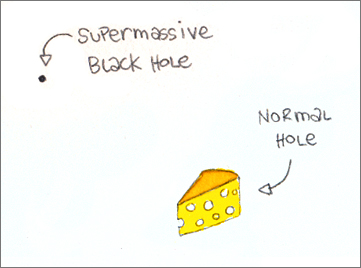 Supermassive
Black Hole
Normal
Hole